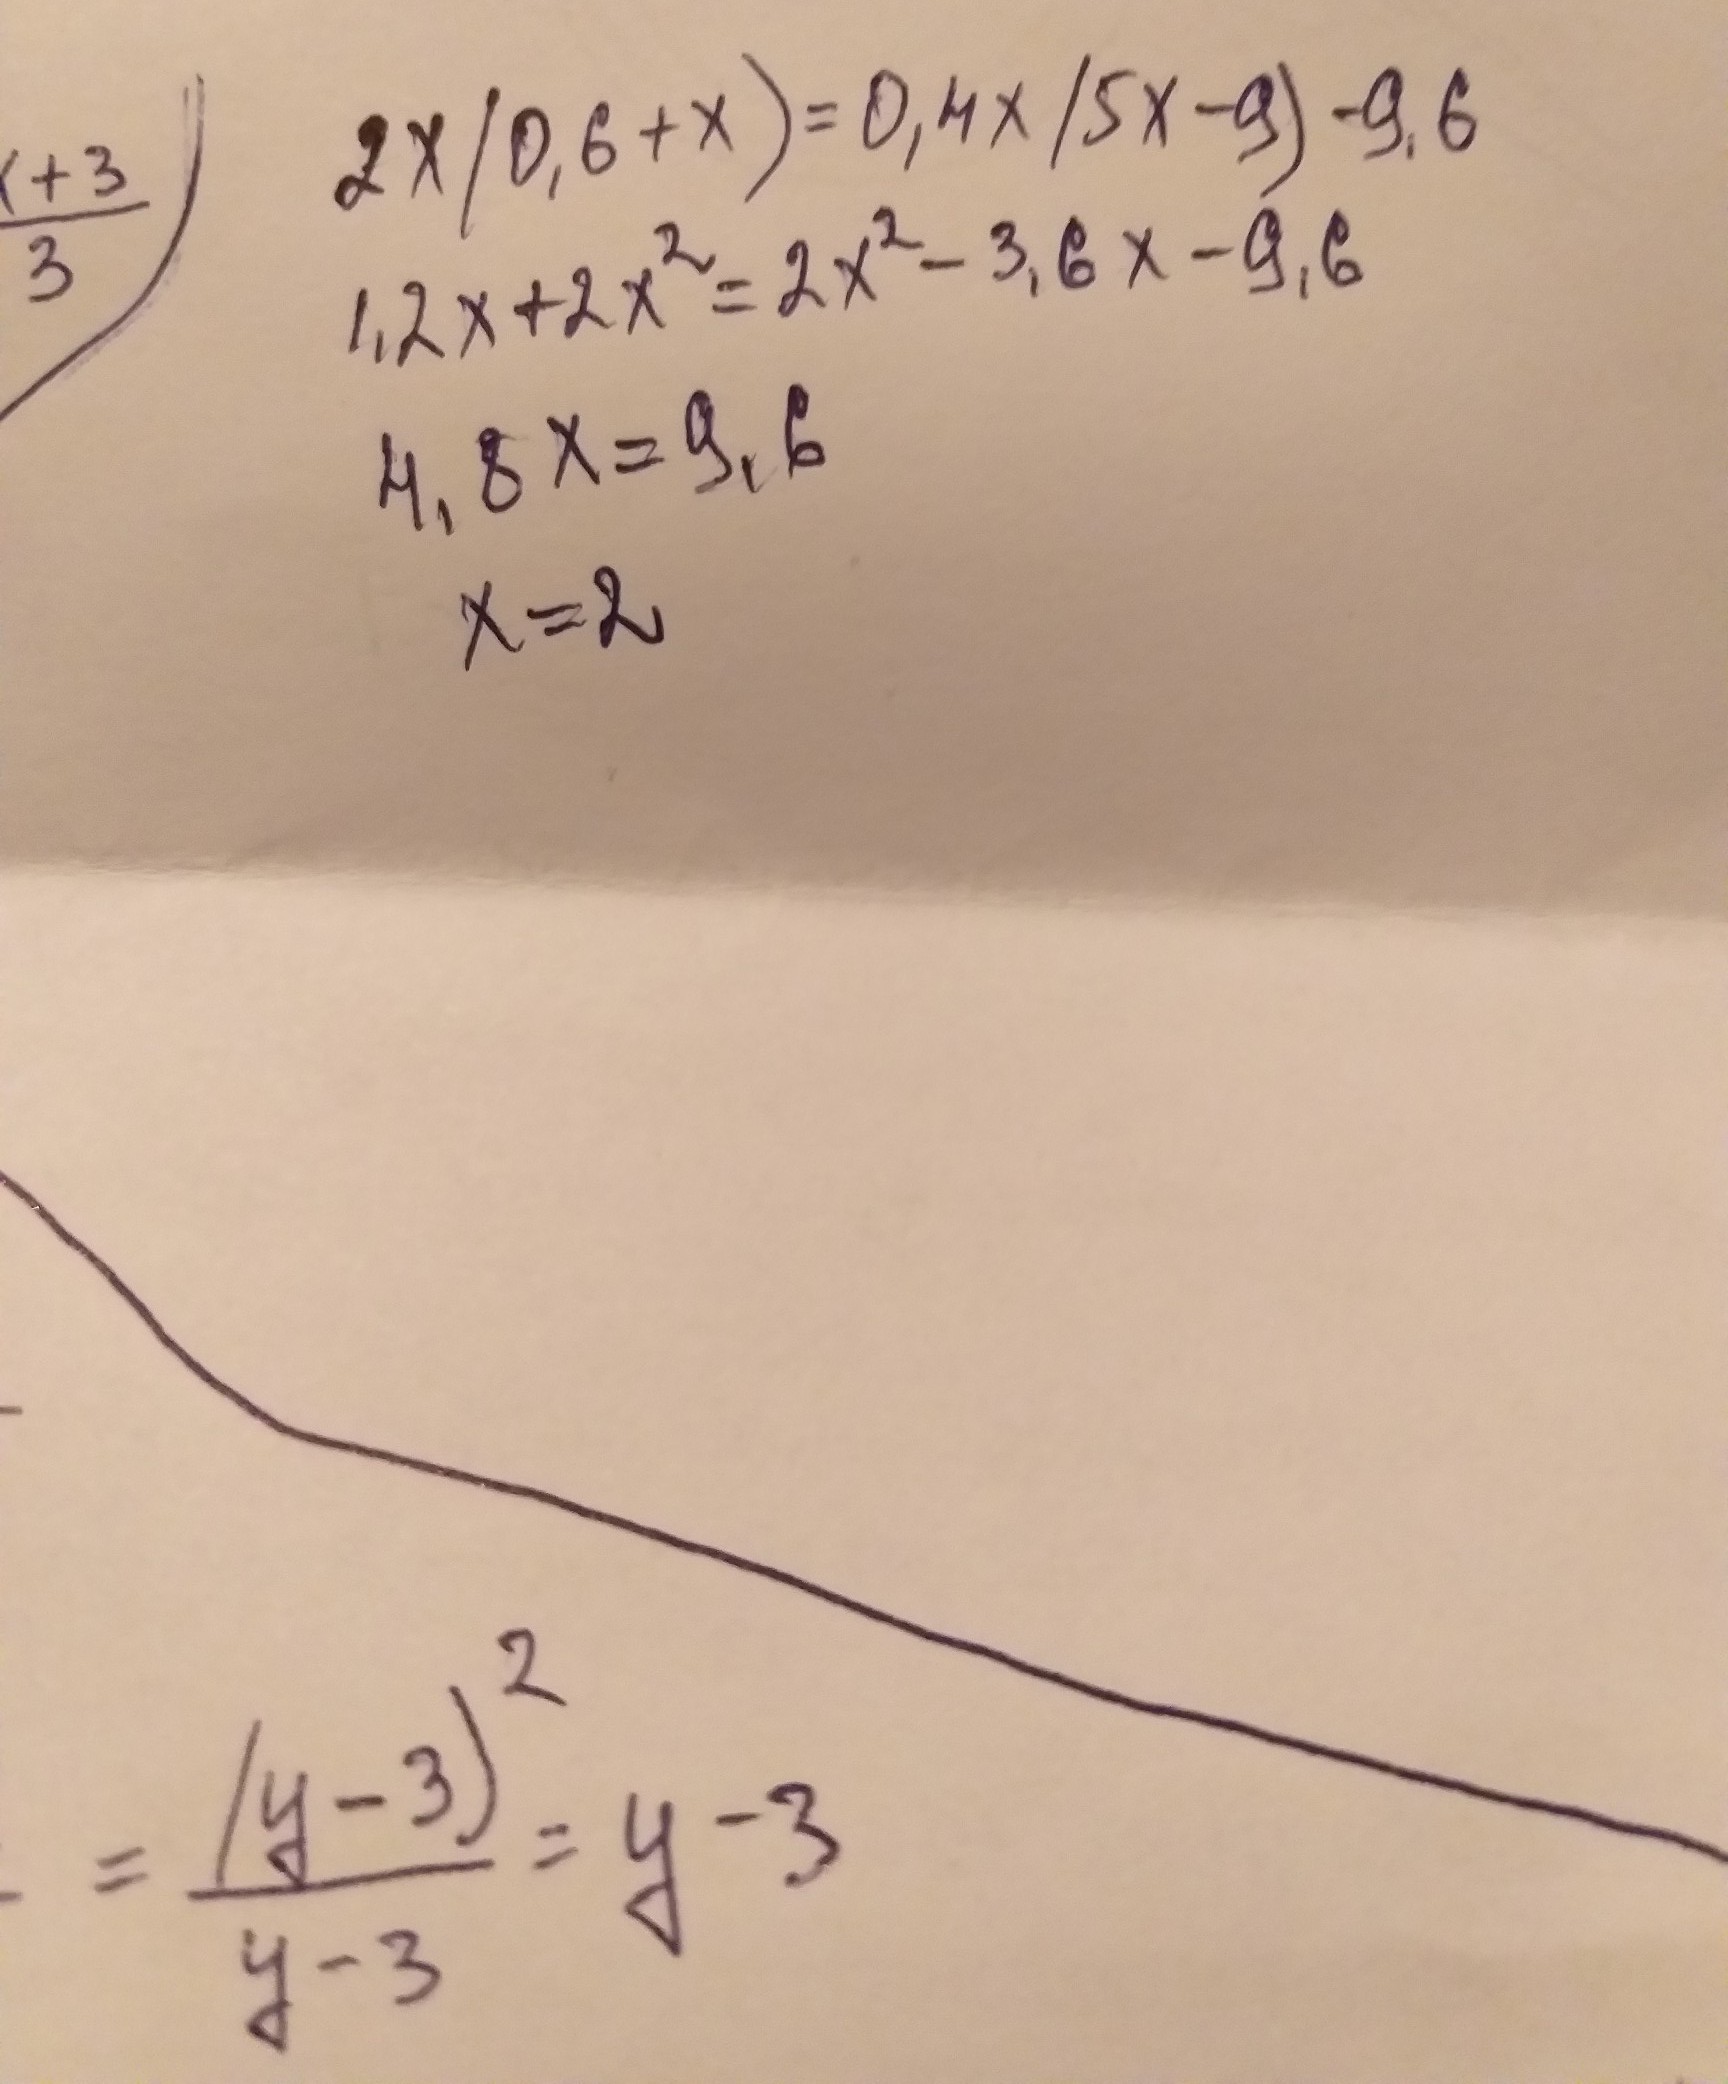 x+3
3
2x(0,6+x)=0,4x(5x-9)-9,6
1,2x+2x²=2x²-3,6x-9,6
4,8x=9,6
x=2
=(y-3)²/y-3=y-3